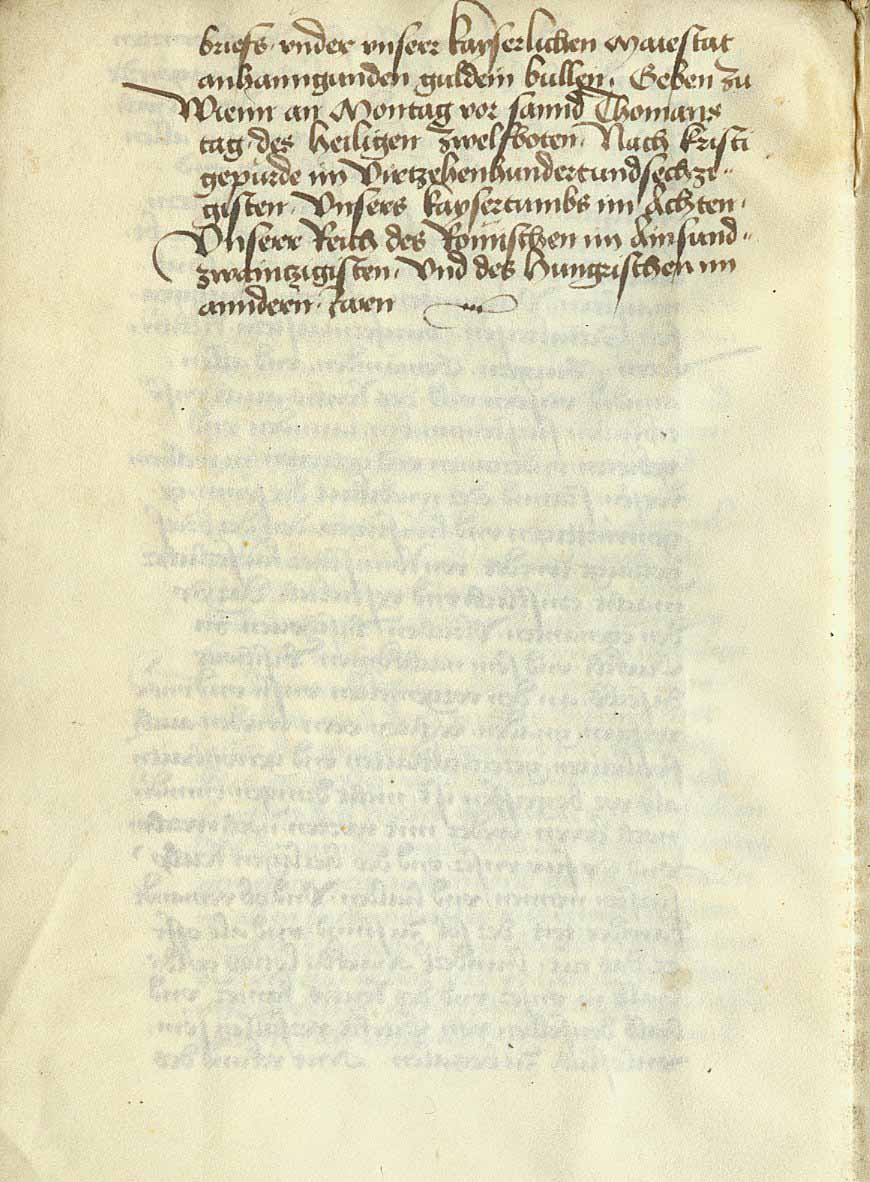 briefs · vnder vnserr kayserlichen Maiestat
anhanngunden guldein bullen · Geben zu
Wienn an Montag vor sannd Thomans
tag · des heiligen zwelfboten · Nach kristi
gepurde im Viertzehenhundertundsechzi-
gisten · Vnsers kaysertumbs im Achten ·
Vnserr Reich des Romischen im Ainsund-
zwaintzigisten · Vnd des hungrischen im
anndern · Jaren